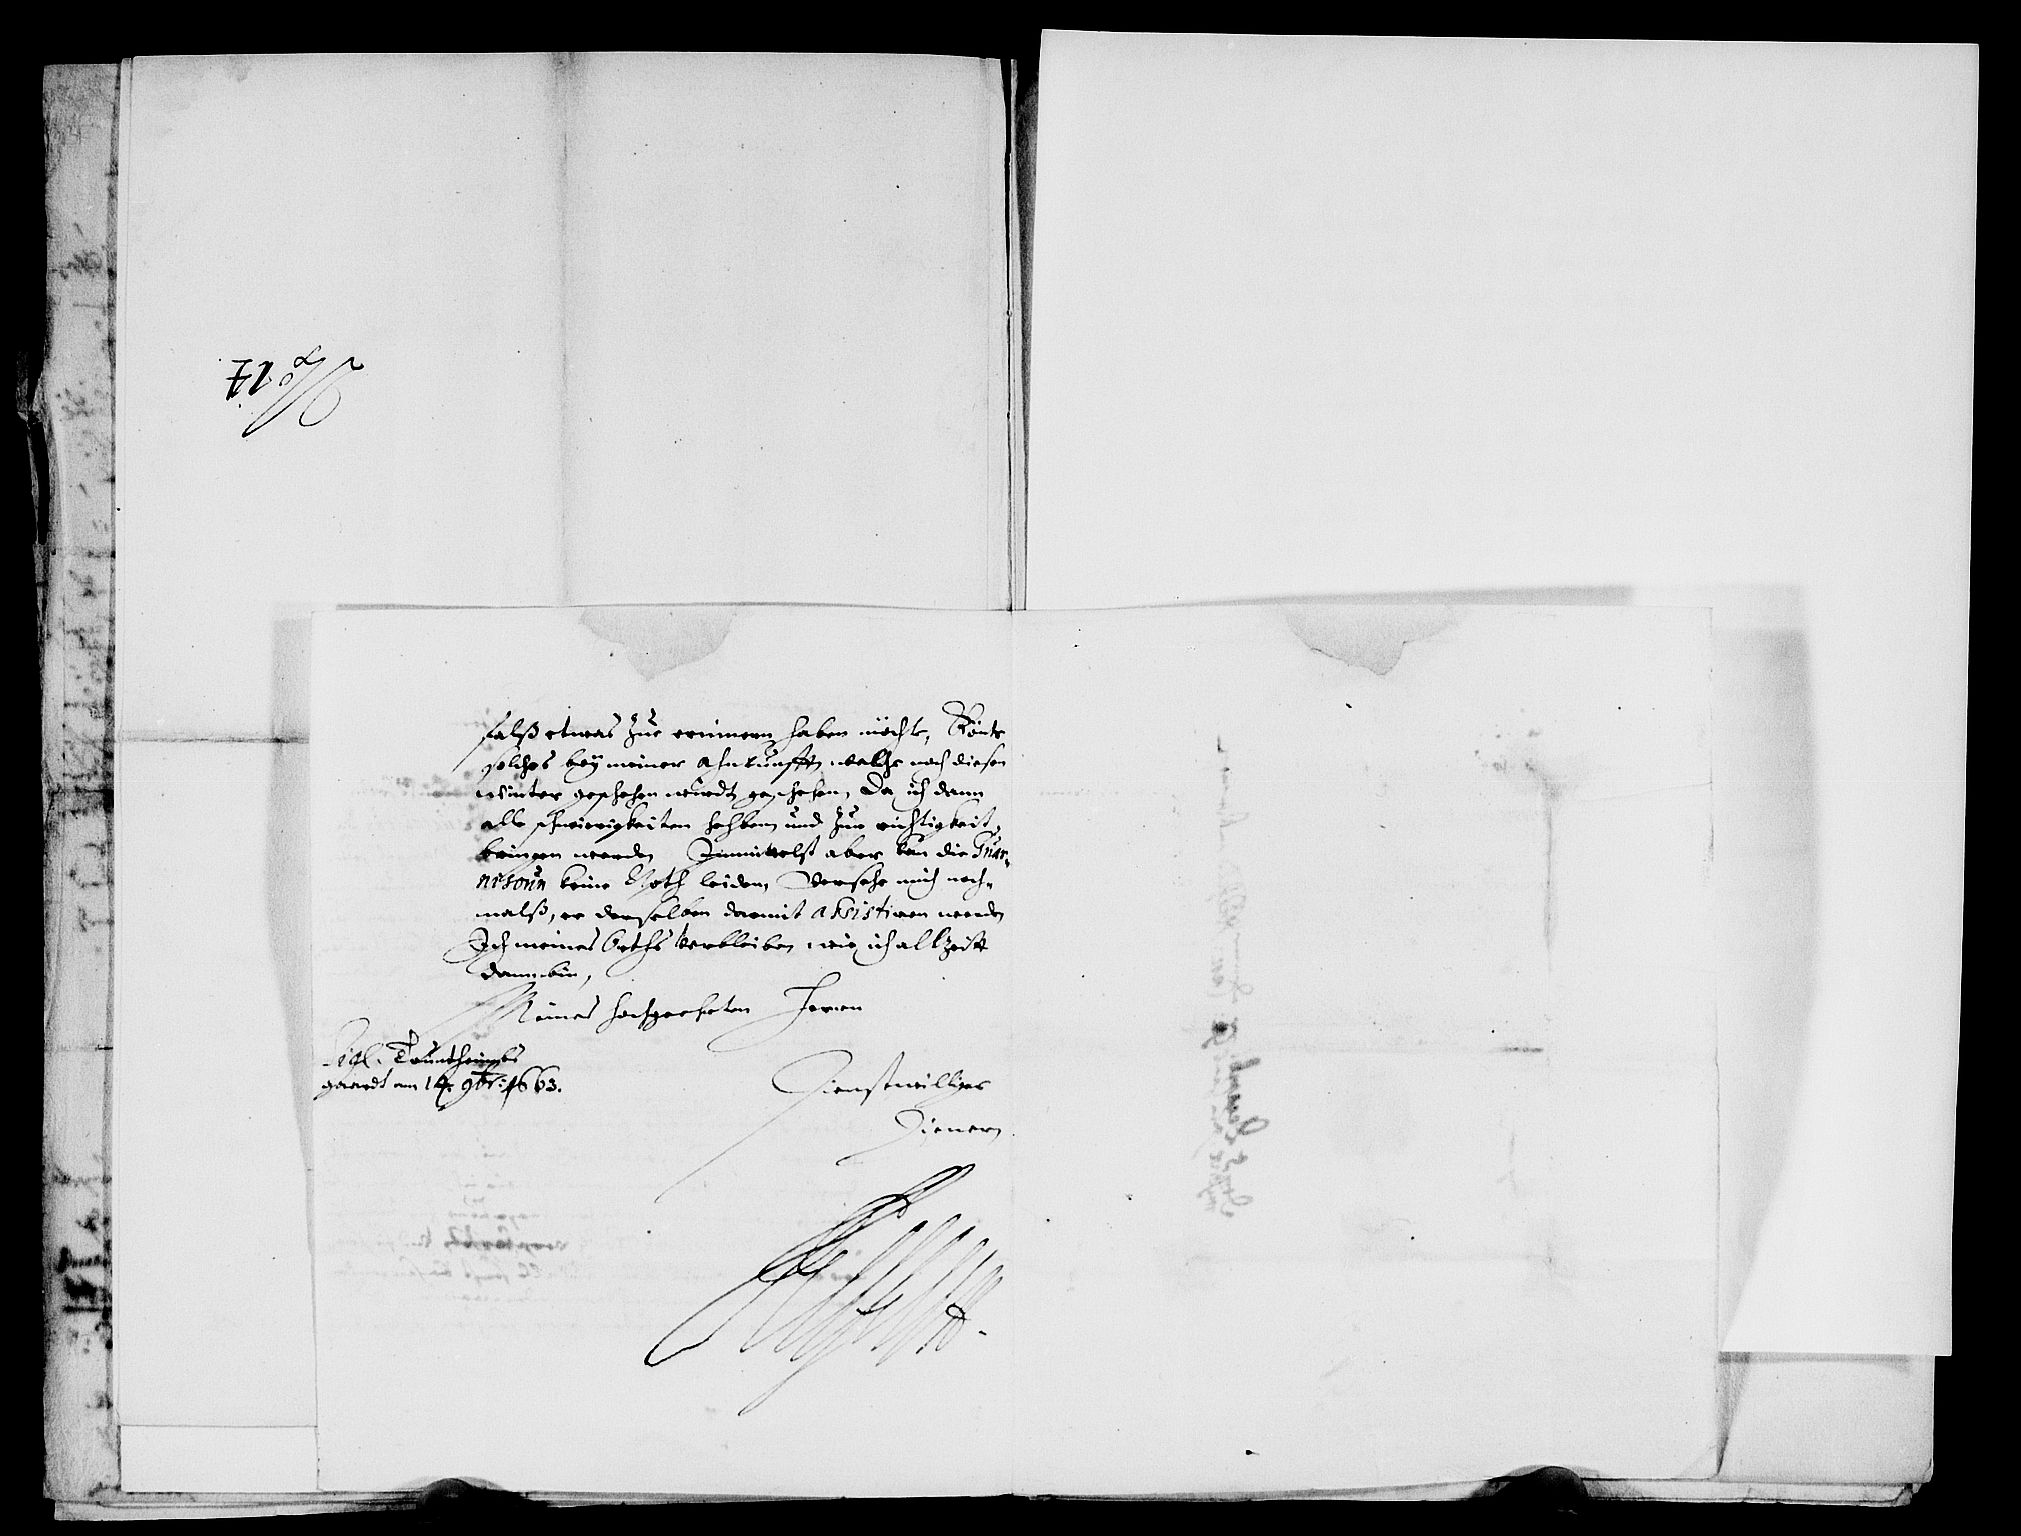 No. 17.
falß etwas zue erinnern haben möchte, Könte
solches beÿ meiner Ahnkunfft welche noch diesen
winter geschehen wirdt geschehen, Da ich dann
alle schwirigkeiten hebben und zur richtigkeit
bringen werde, Immittelst aber kan die Guar-
nisoun keine Noth leiden, Versehe mich noch-
malß, er derselben darmit assistiren werde
Ich meines Orths verbleiben wie ich allzeitt
dann bin,
Meines hochgeehrten Herren
Sigl. Truntheimbs
gaardt am 14. 9br: 1663.
Dienstwilliger
Diener